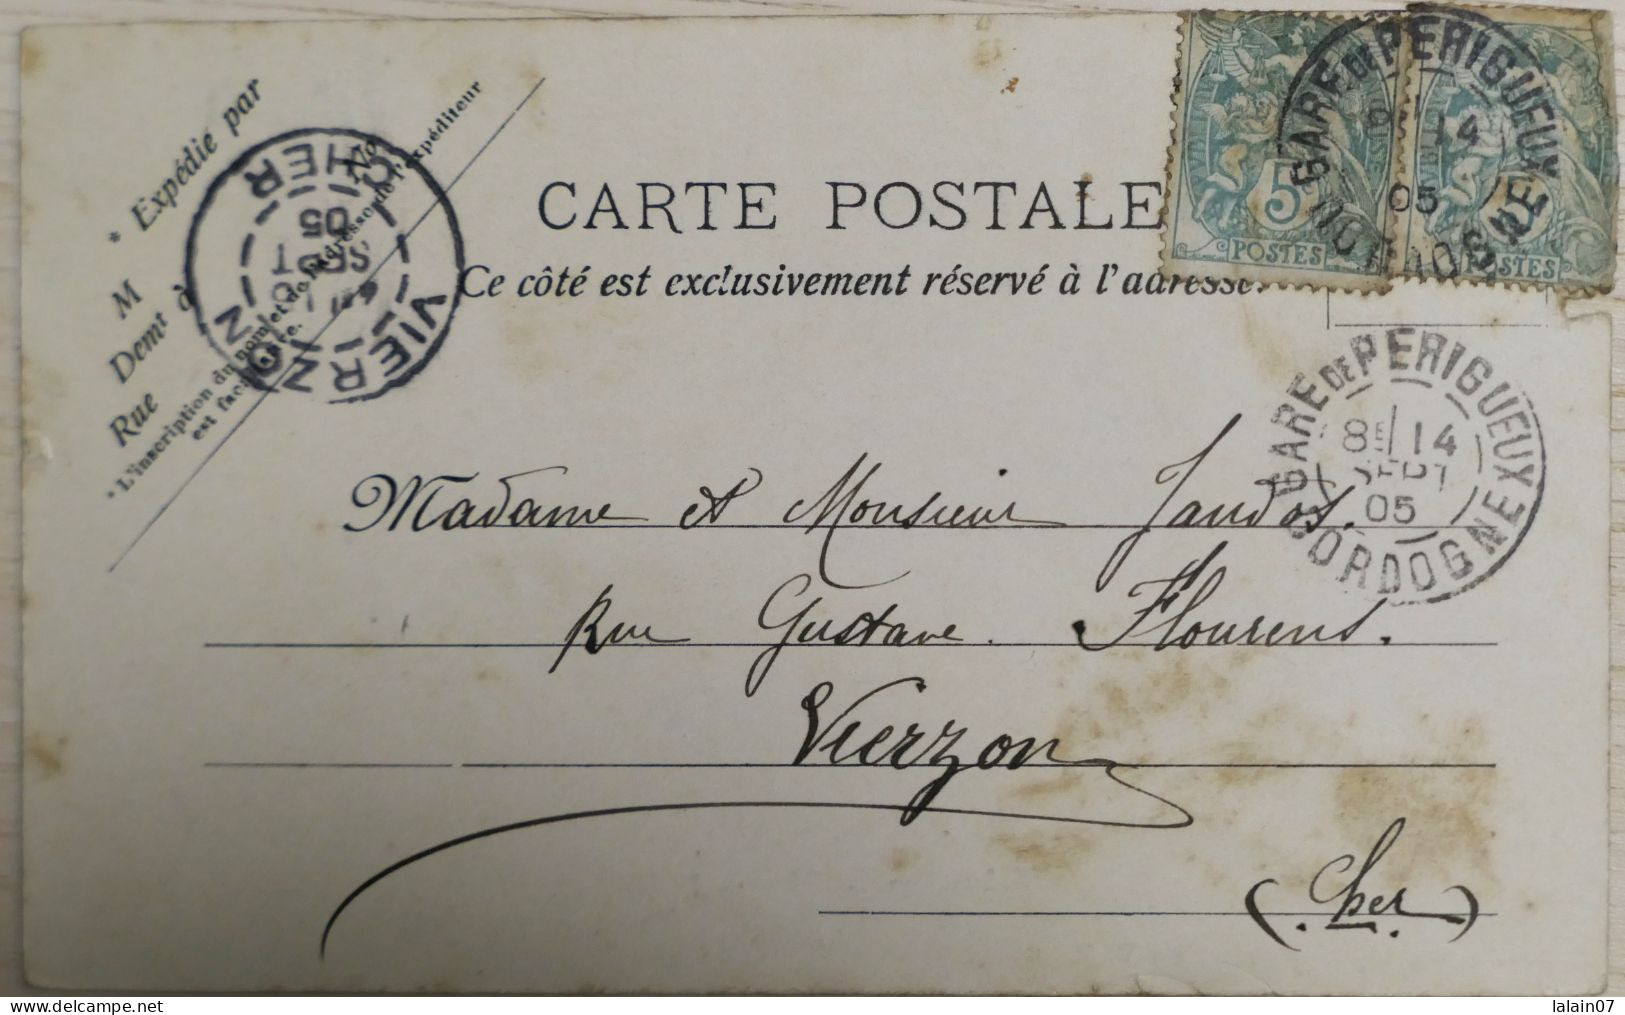 * Expédié par
M
Demt à
Rue
No
* L'inscription du nom et de l'adresse de l'expéditeur
est facultative.
VIERZON
SEPT
05
CHER
CARTE POSTALE
Ce côté est exclusivement réservé à l'adresse.
5
POSTES
POSTES
GARE DE PERIGUEUX
14
05
DORDOGNE
GARE DE PERIGUEUX
8E 14
SEPT
05
DORDOGNE
Madame et Monsieur Jaudos.
Rue Gustave. Flourens.
Vierzon
(Cher)
Delcampe.net
lalain07